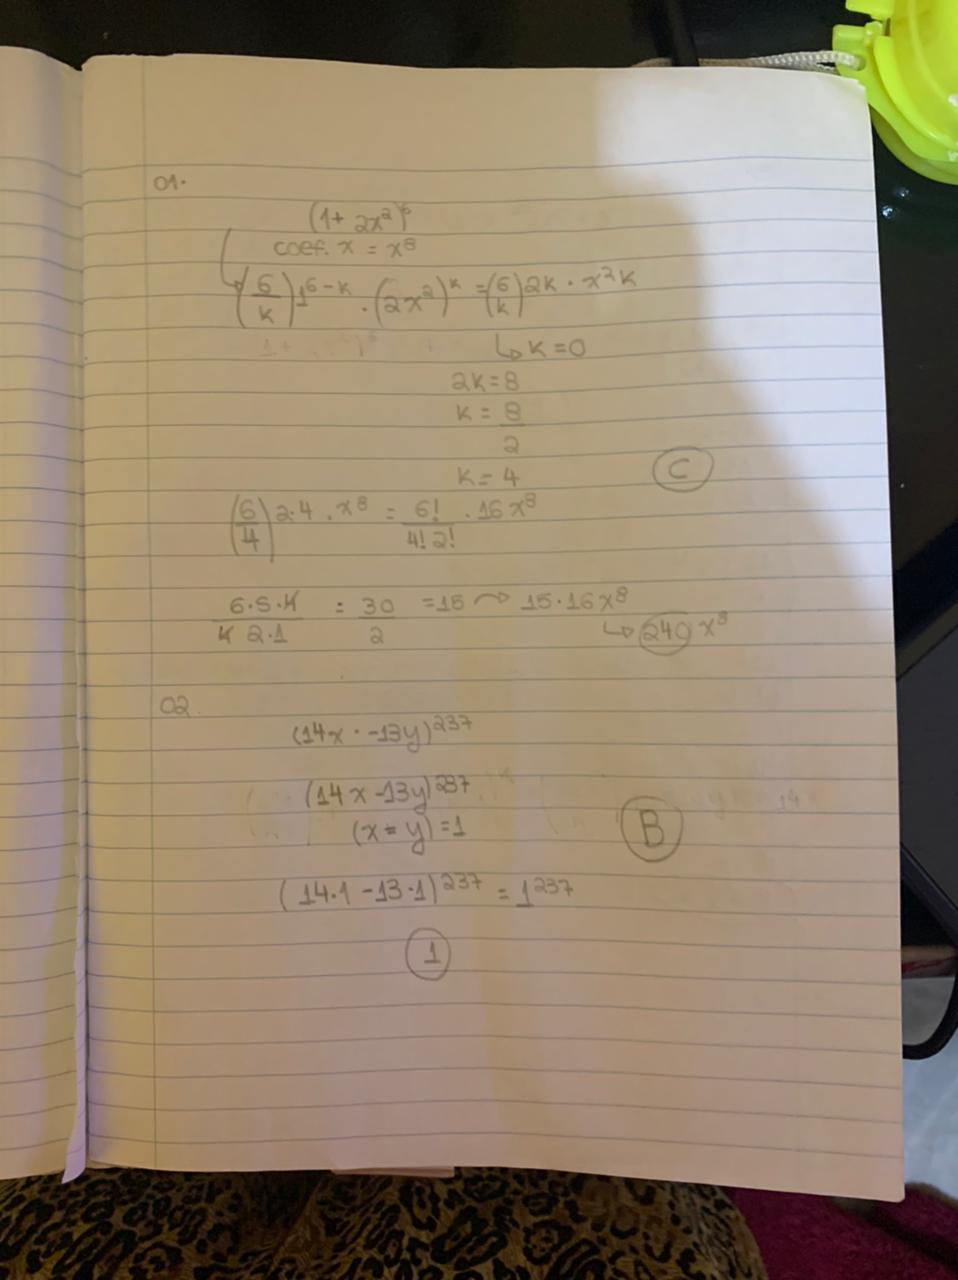 01.
(1 + 2x²)⁶
coef. x = x⁸
(6/K) 1⁶⁻ᴷ · (2x²)ᴷ = (6/K) 2K · x²K
↳ K = 0
2K = 8
K = 8/2
K = 4
C
(6/4) 2·4 · x⁸ = 6!/4!2! · 16x⁸
6·5·4/4 2·1 = 30/2 = 15 → 15·16x⁸
↳ 240 x⁸
02.
(14x · -13y)²³⁷
(14x - 13y)²³⁷
(x = y) = 1
B
(14·1 - 13·1)²³⁷ = 1²³⁷
1